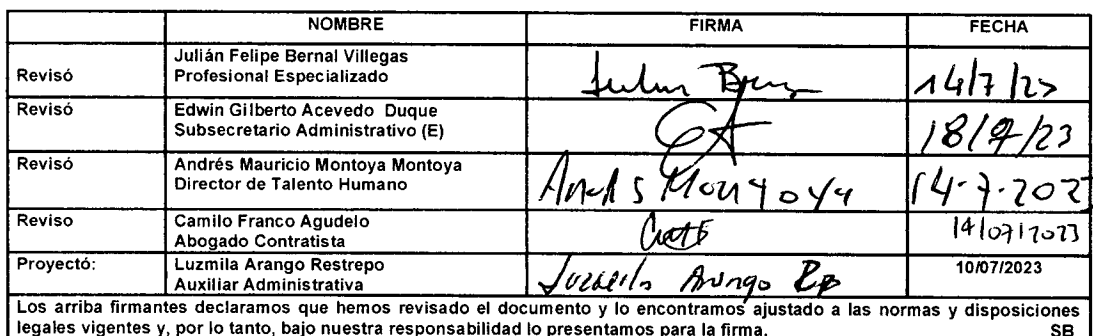 NOMBRE FIRMA FECHA
Julián Felipe Bernal Villegas
Revisó Profesional Especializado 14/7/23
Revisó Edwin Gilberto Acevedo Duque
Subsecretario Administrativo (E) 18/7/23
Revisó Andrés Mauricio Montoya Montoya
Director de Talento Humano Andrés Montoya 14-7-202
Reviso Camilo Franco Agudelo 14/07/2023
Abogado Contratista
Proyectó: Luzmila Arango Restrepo 10/07/2023
Auxiliar Administrativa Luzmila Arango
Los arriba firmantes declaramos que hemos revisado el documento y lo encontramos ajustado a las normas y disposiciones
legales vigentes y, por lo tanto, bajo nuestra responsabilidad lo presentamos para la firma. SB